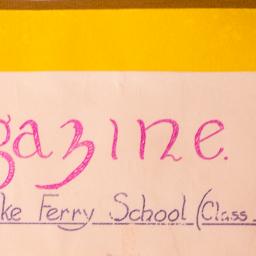 gazine.
ke Ferry School (Class